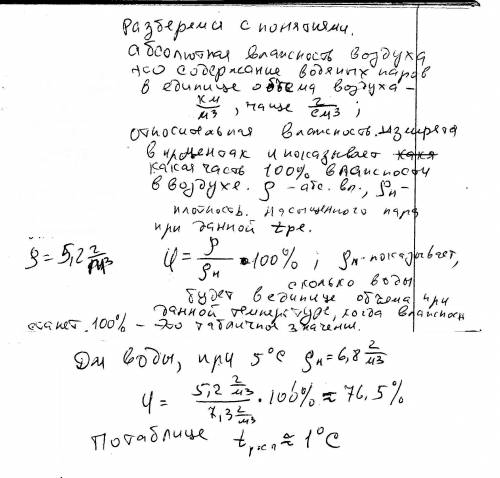 Разберемся с понятиями.
абсолютная влажность воздуха
это содержание водяных паров
в единице объема воздуха -
кг/м3, чаще г/см3;
относительная влажность измеряется
в процентах и показывает
какая часть 100% влажности
в воздухе. ρ - абс. вл., ρн -
плотность насыщенного пара
при данной t-ре.
ρ = 5,2 г/м3 φ = ρ/ρн • 100% ; ρн - показывает,
сколько воды
будет в единице объема при
данной температуре, когда влажность
станет 100% - это табличное значение.
Для воды, при 5°C ρн = 6,8 г/м3
φ = 5,2 г/м3 / 7,3 г/м3 · 100% ≈ 76,5%
По таблице t росы ≈ 1°C